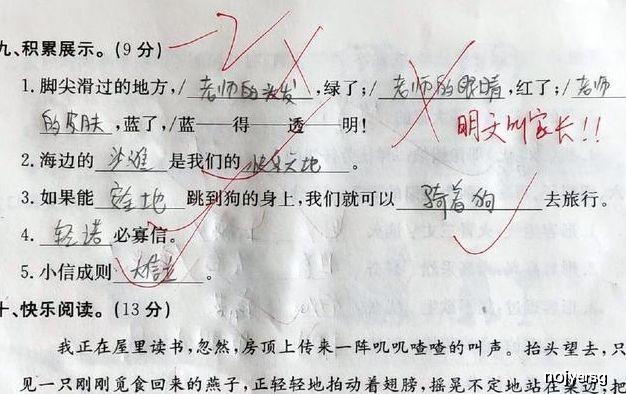 九、积累展示。(9 分) -2
1. 脚尖滑过的地方,/ 老师的头发 ,绿了;/ 老师的眼睛 ,红了;/ 老师
的皮肤 ,蓝了,/蓝——得——透——明!
明天叫家长!!
2. 海边的 沙滩 是我们的 快乐天地 。
3. 如果能 安全地 跳到狗的身上,我们就可以 骑着狗 去旅行。
4. 轻诺 必寡信。
5. 小信成则 大信立 。
十、快乐阅读。(13 分)
我正在屋里读书,忽然,房顶上传来一阵叽叽喳喳的叫声。抬头望去,只
见一只刚刚觅食回来的燕子,正轻轻地拍动着翅膀,摇晃不定地站在梁边,把
noiversg